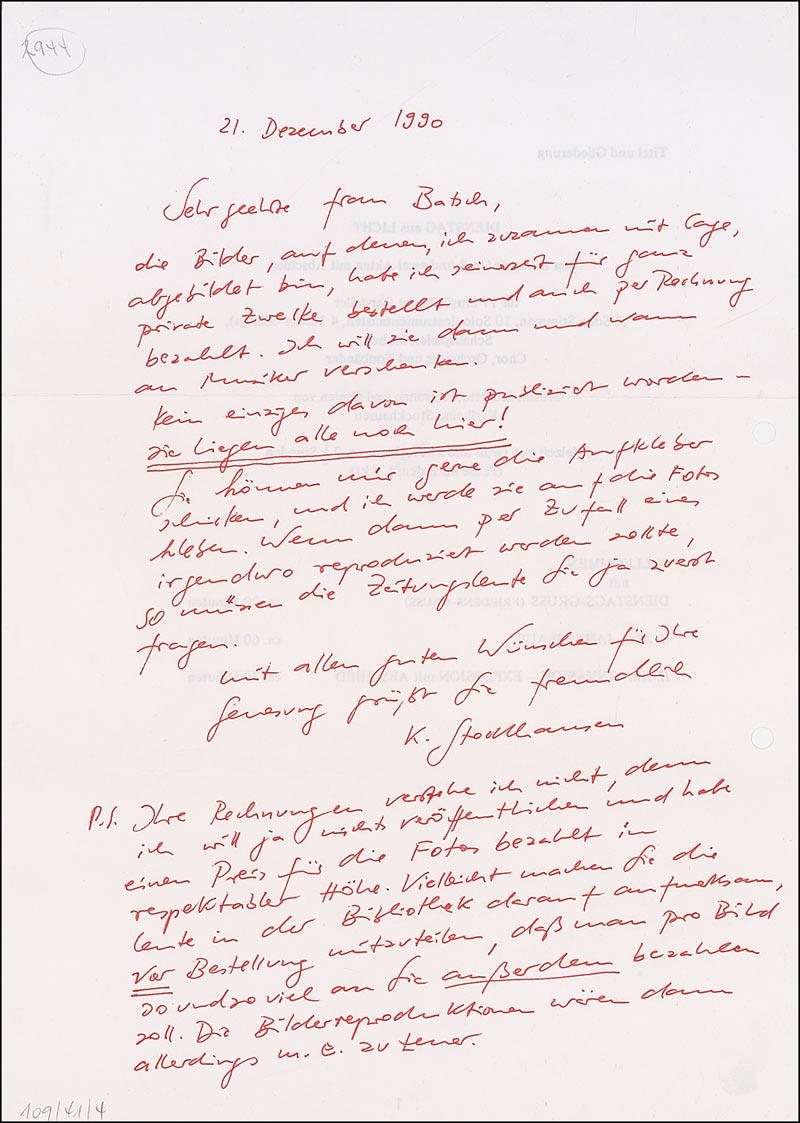 2944
21. Dezember 1990
Titel und Gliederung
Sehr geehrte Frau Batsch,
DIENSTAG aus LICHT
die Bilder, auf denen ich zusammen mit Cage,
abgebildet bin, habe ich seinerzeit für ganz
private Zwecke bestellt und auch per Rechnung
bezahlt. Ich will sie dann und wann
Chor, Orchester und Tonbänder
an Musiker verschenken.
Kein einziges davon ist publiziert worden –
sie liegen alle noch hier!
Sie können mir gerne die Aufkleber
schicken, und ich werde sie auf die Fotos
kleben. Wenn dann per Zufall eines
irgendwo reproduziert werden sollte,
so müssen die Zeitungsleute Sie ja zuerst
DIENSTAGS-GRUSS
fragen.
ca. 60 Minuten
mit allen guten Wünschen für Ihre
EXPLOSION mit ABSCHIED
Genesung grüßt Sie freundlich
K. Stockhausen
P.S. Ihre Rechnungen verstehe ich nicht, denn
ich will ja nichts veröffentlichen und habe
einen Preis für die Fotos bezahlt in
respektabler Höhe. Vielleicht machen Sie die
Leute in der Bibliothek darauf aufmerksam,
vor Bestellung mitzuteilen, daß man pro Bild
so und so viel an Sie außerdem bezahlen
soll. Die Bilderreproduktionen wären dann
allerdings m. E. zu teuer.
109/41/4